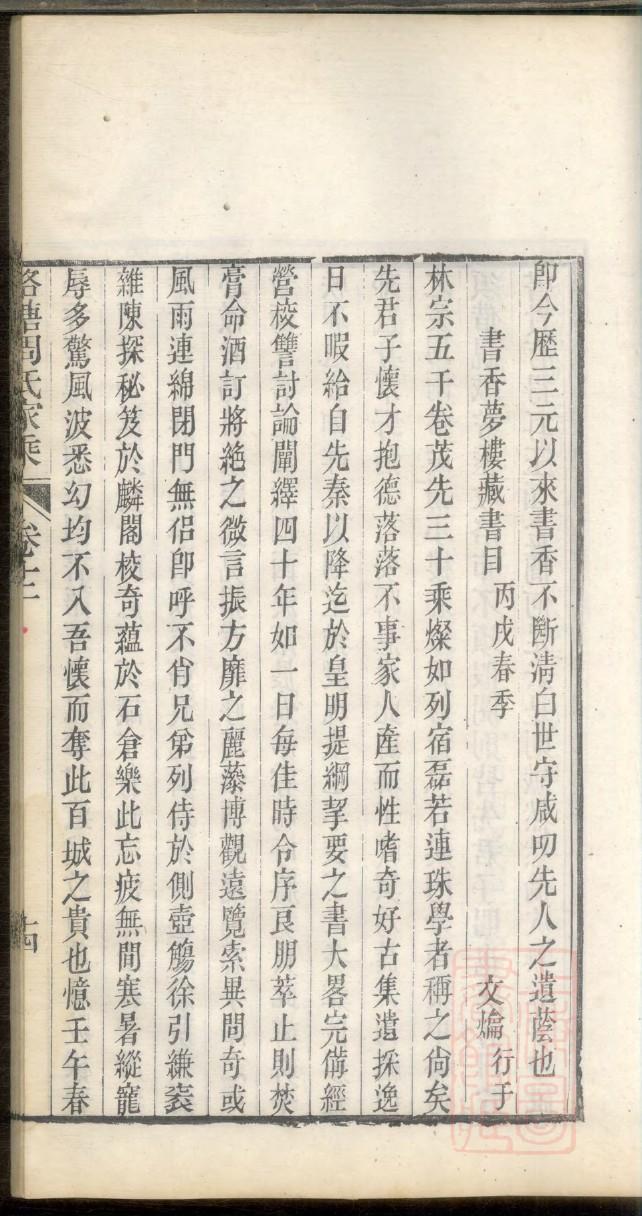 卽今歷三元以來書香不斷淸白世守咸叨先人之遺蔭也
書香夢樓藏書目 丙戌春季 文爚 行于
林宗五千卷茂先三十乘燦如列宿磊若連珠學者稱之尙矣
先君子懷才抱德落落不事家人產而性嗜奇好古集遺採逸
日不暇給自先秦以降迄於皇明提綱挈要之書大畧完備經
營校讐討論闡繹四十年如一日每佳時令序良朋萃止則焚
膏命酒訂將絶之微言振方靡之麗藻博觀遠覽索異問奇或
風雨連綿閉門無侶卽呼不肖兄弟列侍於側壺觴徐引縑袠
雜陳探秘笈於麟閣校奇蘊於石倉樂此忘疲無間寒暑縱寵
辱多驚風波悉幻均不入吾懷而奪此百城之貴也憶壬午春
周氏家乘 卷十二 十四